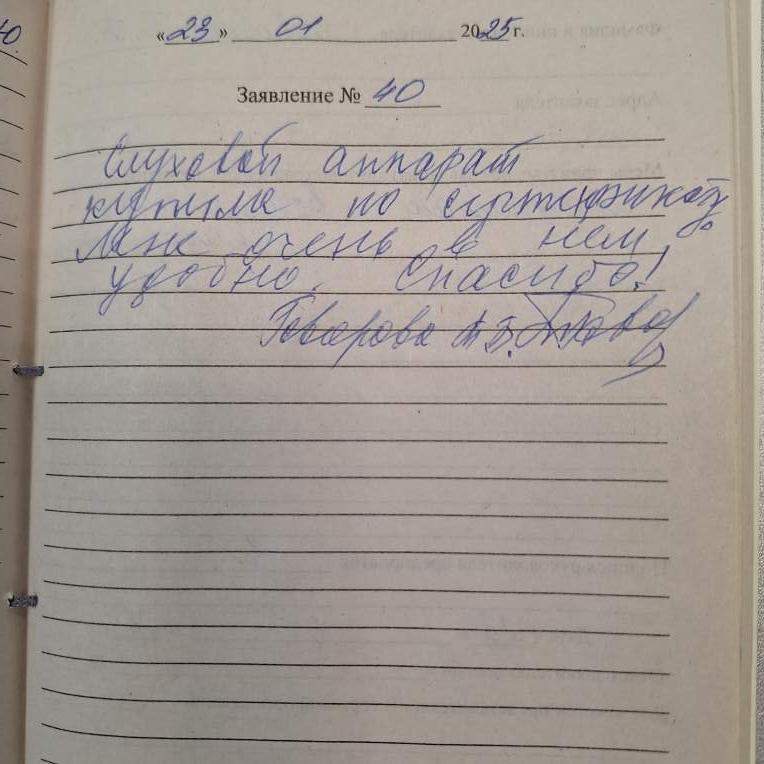 «23» 01 2025 г.
Заявление № 40
Слуховой аппарат
купила по сертификату.
Мне очень в нем
удобно. Спасибо!
Говорова